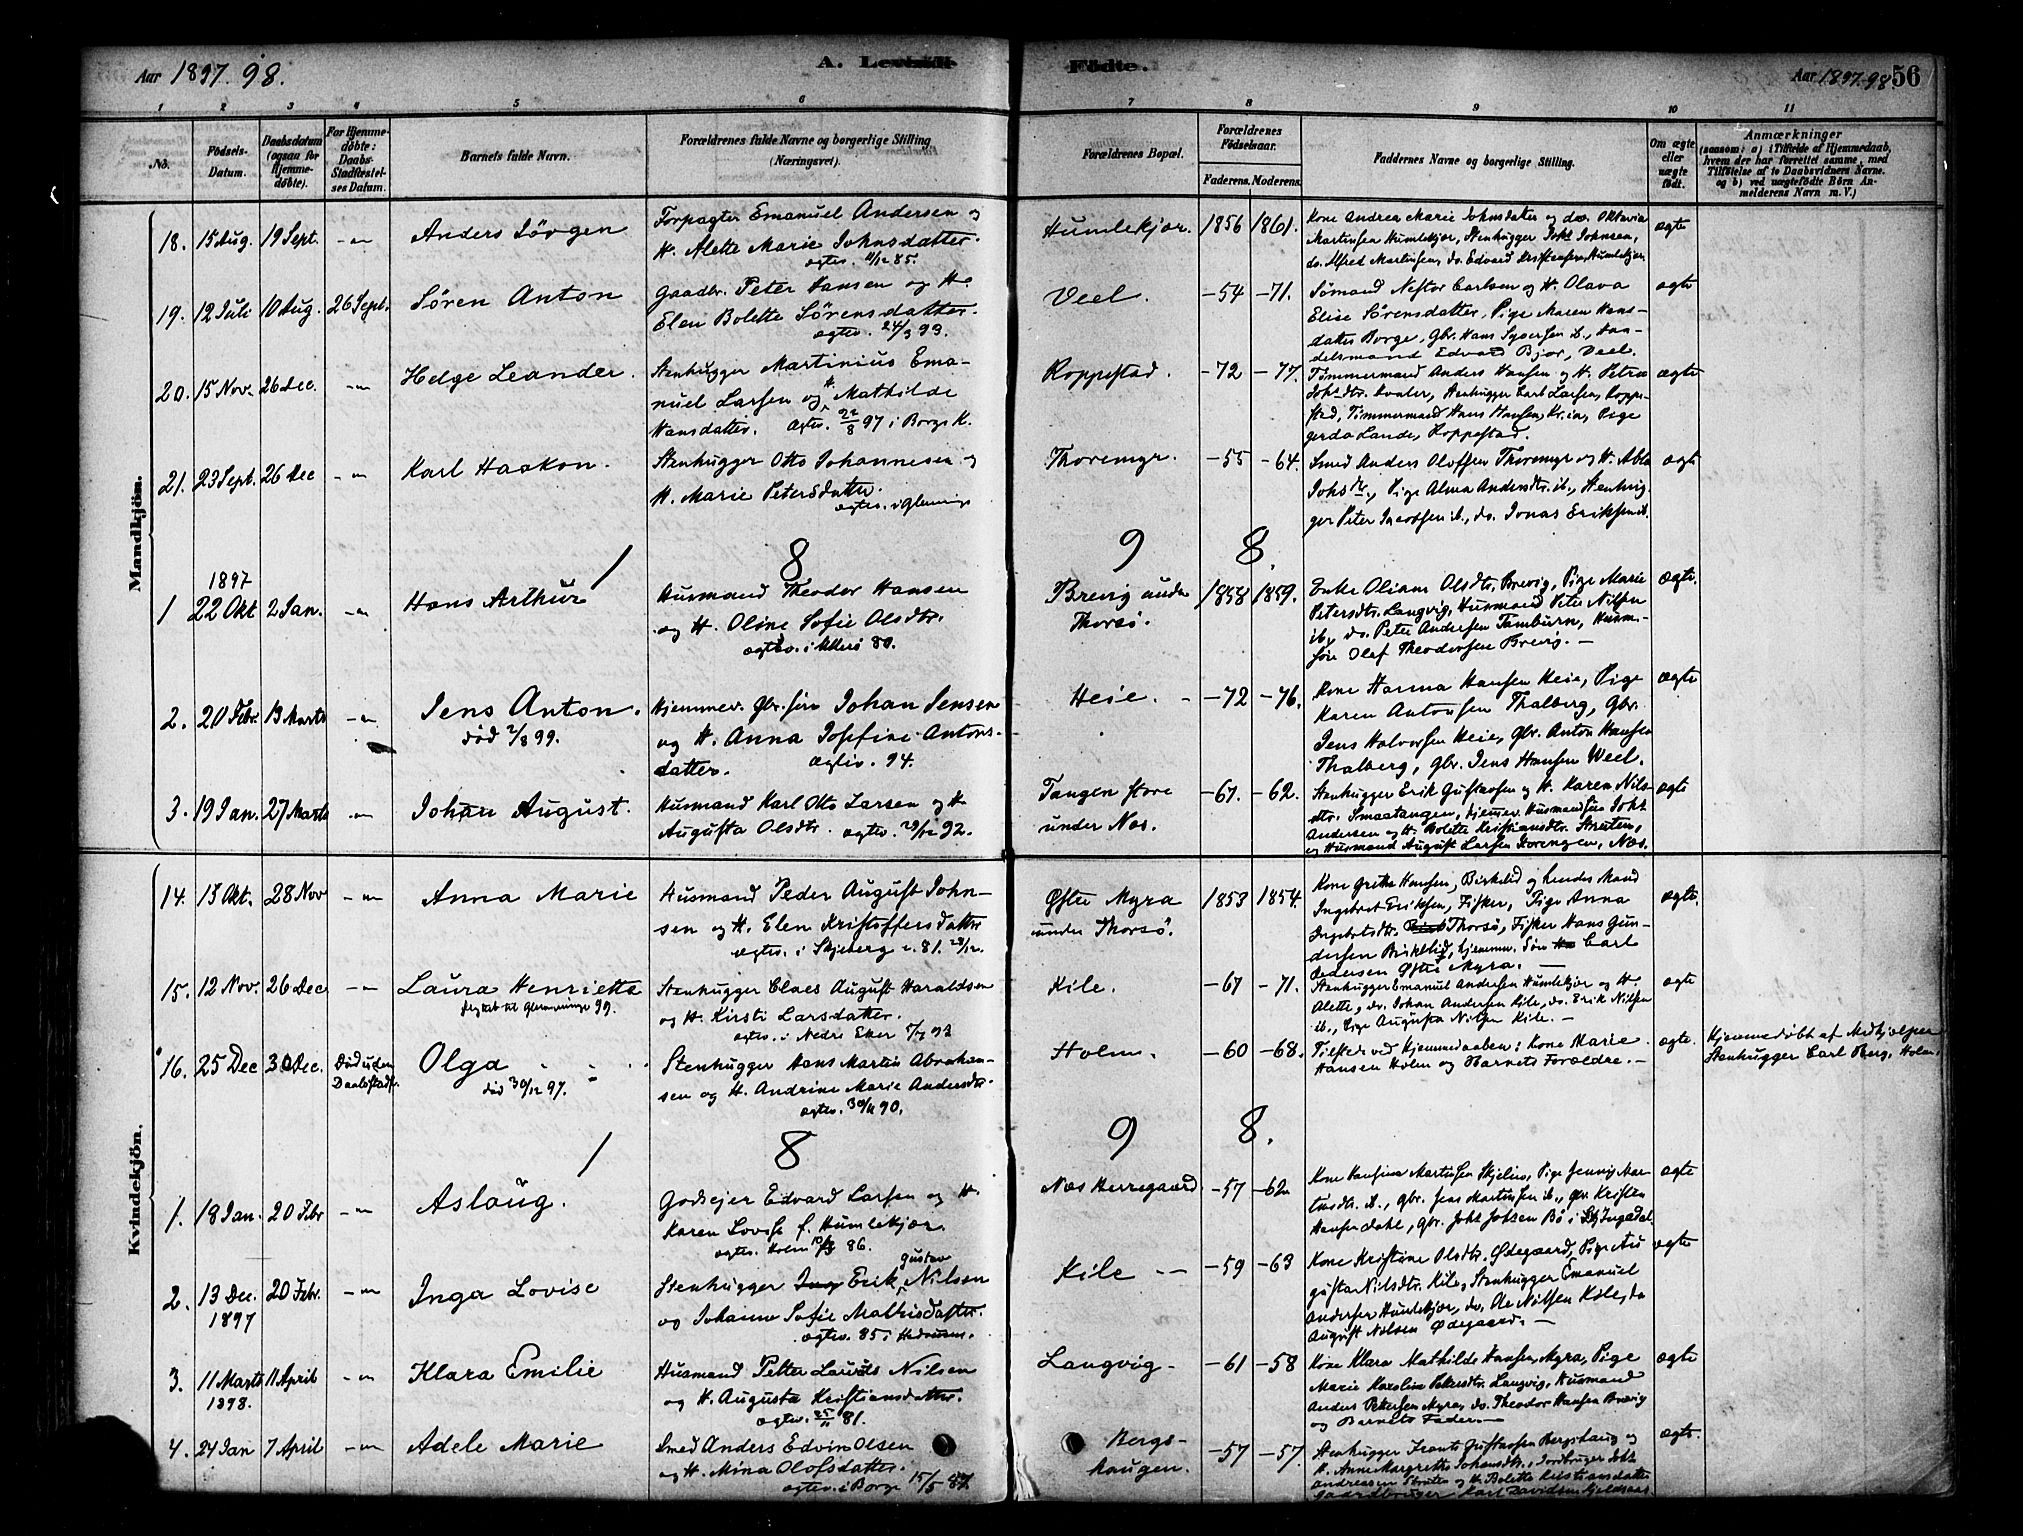 Aar 1897. 98.
A. Levende Födte.
Aar 1897-98. 56
1 2 3 4 5 6 7 8 9 10 11
No.
Födsels-Datum.
Daabsdatum (ogsaa for Hjemme-döbte).
For Hjemme-döbte: Daabs-Stadfæstel-ses Datum.
Barnets fulde Navn.
Forældrenes fulde Navne og borgerlige Stilling (Næringsvei).
Forældrenes Bopæl.
Forældrenes Födselsaar.
Faderens. Moderens.
Faddernes Navne og borgerlige Stilling.
Om ægte eller uægte født.
Anmærkninger
(saasom: a) i Tilfælde af Hjemmedaab, hvem der har forrettet samme, med Tilföielse af to Daabsvidners Navne, og b) ved uægtefödte Börn An-melderens Navn m. V.)
Mandkjön.
18. 15 Aug. 19 Sept. -"- Anders Jörgen
Forpagter Emanuel Andersen og
H. Alette Marie Johnsdatter.
ægtev. 11/12 85.
Humlekjær. 1856 1861.
Kone Andrea Marie Johnsdatter og do. Oktavia
Martinsen Humlekjær, Stenhugger Johs Johnsen,
do. Alfred Martinsen, do. Edvard Kristensen, Humlekjær
ægte
19. 12 Juli 10 Aug. 26 Sept. Sören Anton
Gaardbr. Peter Hansen og H.
Elen Bolette Sörensdatter.
ægtev. 24/3 93.
Veel. -54 -71.
Sömand Nestor Carlsen og H. Olava
Elise Sörensdatter, Pige Maren Hans-
datter Borge, Gbr. Hans Syversen ib., Han-
delsmand Edvard Bjor, Veel.
ægte
20. 15 Nov. 26 Dec. -"- Helge Leander.
Stenhugger Martinius Ema-
nuel Larsen og H. Mathilde
Hansdatter. ægtev. 22/8 97 i Borge K.
Roppestad. -72 -77.
Tömmermand Anders Hansen og H. Petra
Stenhugger Carl Larsen, Roppe-
stad, Tömmermand Hans Hansen, Kr.ia, Pige
Gerda Lande, Roppestad.
ægte
21. 23 Sept. 26 Dec -"- Karl Haakon.
Stenhugger Otto Johannesen og
H. Marie Petersdatter.
ægtev. i Glemminge
Thoremyr. -55 -64.
Smed Anders Oloffen Thoremyr og H.
Pige Alma Andersdtr. ib., Stenhug-
ger Peter Jacobsen ib., do. Jonas Eriksen ib.
ægte
1 8 9 8.
1897
1 22 Okt 2 Jan. -"- Hans Arthur
Husmand Theodor Hansen
og H. Oline Sofie Olsdtr.
ægtev. i 80.
Brevig under
Thorsö.
1858 1859.
Enke Oliane Olsdtr. Brevig, Pige Marie
Petersdtr. Langvig, Husmand Peter Nilsen
ib., do. Peter Andersen Tamburn, Husm.-
søn Olaf Theodorsen Brevig. -
ægte.
2. 20 Febr. 13 Marts -"- Jens Anton.
död 2/8 99.
Hjemmev. Gbr. sön Johan Jensen
og H. Anna Josefine Antons-
datter. ægtev. 94.
Heie. -72 -76.
Kone Hanna Hansen Heie, Pige
Karen Antonsen Thalberg, Gbr.
Jens Halvorsen Heie, Gbr. Anton Hansen
Thalberg, Gbr. Jens Hansen Weel.
ægte
3. 19 Jan. 27 Marts -"- Johan August.
Husmand Karl Otto Larsen og H.
Augusta Olsdtr. ægtev. 29/12 92.
Tangen store
under Næs.
-67. -62.
Stenhugger Erik Gustavsen og H. Karen Nils-
dtr. Smaatangen, hjemmev. Husmandssön Johs
Andersen og H. Bolette Kristiansdtr. Struten,
og Husmand August Larsen Torengen, Næs.
ægte
Kvindekjön.
14. 13 Okt. 28 Nov -"- Anna Marie
Husmand Peder August John-
sen og H. Elen Kristoffersdatter
ægtev. i Skjeberg K. 81. 28/12.
Östre Myra
under Thorsö.
1853 1854.
Kone Grethe Hansen, Birkelid og hendes Mand
Ingebret Eriksen, Fisker, Pige Anna
Ingebretsdtr. Thorsö, Fisker Hans Gun-
dersen Birkelid, hjemmev. Sön Carl
Pedersen Östre Myra. -
ægte.
15. 12 Nov. 26 Dec -"- Laura Henriette
flyttet til Glemminge 99.
Stenhugger Claes August Haraldsen
og H. Kirsti Larsdatter.
ægtev. i Nedre Eker
Kile. -67 -71.
Stenhugger Emanuel Andersen Humlekjær og H.
Alette, do. Johan Andersen Kile, do. Erik Nilsen
ib., Pige Augusta Nilsen Kile. -
ægte
16. 25 Dec 30 Dec. Död uden Daabsstadf. Olga
död 30/12 97.
Stenhugger Hans Martin Abraham-
sen og H. Andrine Marie Andersdtr.
ægtev. 30/11 90.
Holm. -60 -68.
Tilsted ved Hjemmedaaben: Kone Marie
Hansen Holm og Barnets Forældre. -
ægte.
Hjemmedöbt af Medhjelper
Stenhugger Carl Berg, Holm.
1 8 9 8.
1. 18 Jan. 20 Febr -"- Aslaug.
Godsejer Edvard Larsen og H.
Karen Lovise f. Humlekjær.
ægtev. Holm 86.
Næs Herregaard -57 -62
Kone Hansine Martinsen Skjelin, Pige Jenny Mar-
tinsdtr. ib., Gbr. Jens Martinsen ib., Gbr. Kristen
Hansen Dahl, Gbr. Johs Johsen Bö i Ingedal.
ægte
2. 13 Dec. 1897 20 Febr. -"- Inga Lovise
Stenhugger Erik Gustav Nilsen
og Johanne Sofie Mathisdatter.
ægtev. 85 i Hedrum.
Kile -- -59 -63
Kone Kristine Olsdtr. Ödegaard, Pige Au
gusta Nilsdtr. Kile, Stenhugger Emanuel
Andersen Humlekjær, do. Ole Nilsen Kile, do
August Nilsen Ödegaard. -
ægte
3. 11 Marts 1898. 11 April -"- Klara Emilie
Husmand Petter Laurits Nilsen
og H. Augusta Kristiansdatter.
ægtev. 25/11 81.
Langvig - -61 -58
Kone Klara Mathilde Hansen, Myra, Pige
Marie Karoline Petersdtr. Langvig, Husmand
Anders Pettersen Myra, do. Theodor Hansen Brevig
og Barnets Fader. -
ægte
4. 24 Jan 7 April -"- Adele Marie
Smed Anders Edvin Olsen
og H. Mina Olofsdatter.
ægtev. i Borge 15/5 87
Bergs-
haugen.
-57 -57.
Stenhugger Frants Gustavsen Bergshaug og
H. Anne Margrethe Johansdtr., Jordbruger Johs
Andreassen Struten og H. Bolette Kristiansdatter
Gaardbruger Karl Davidsen
ægte.